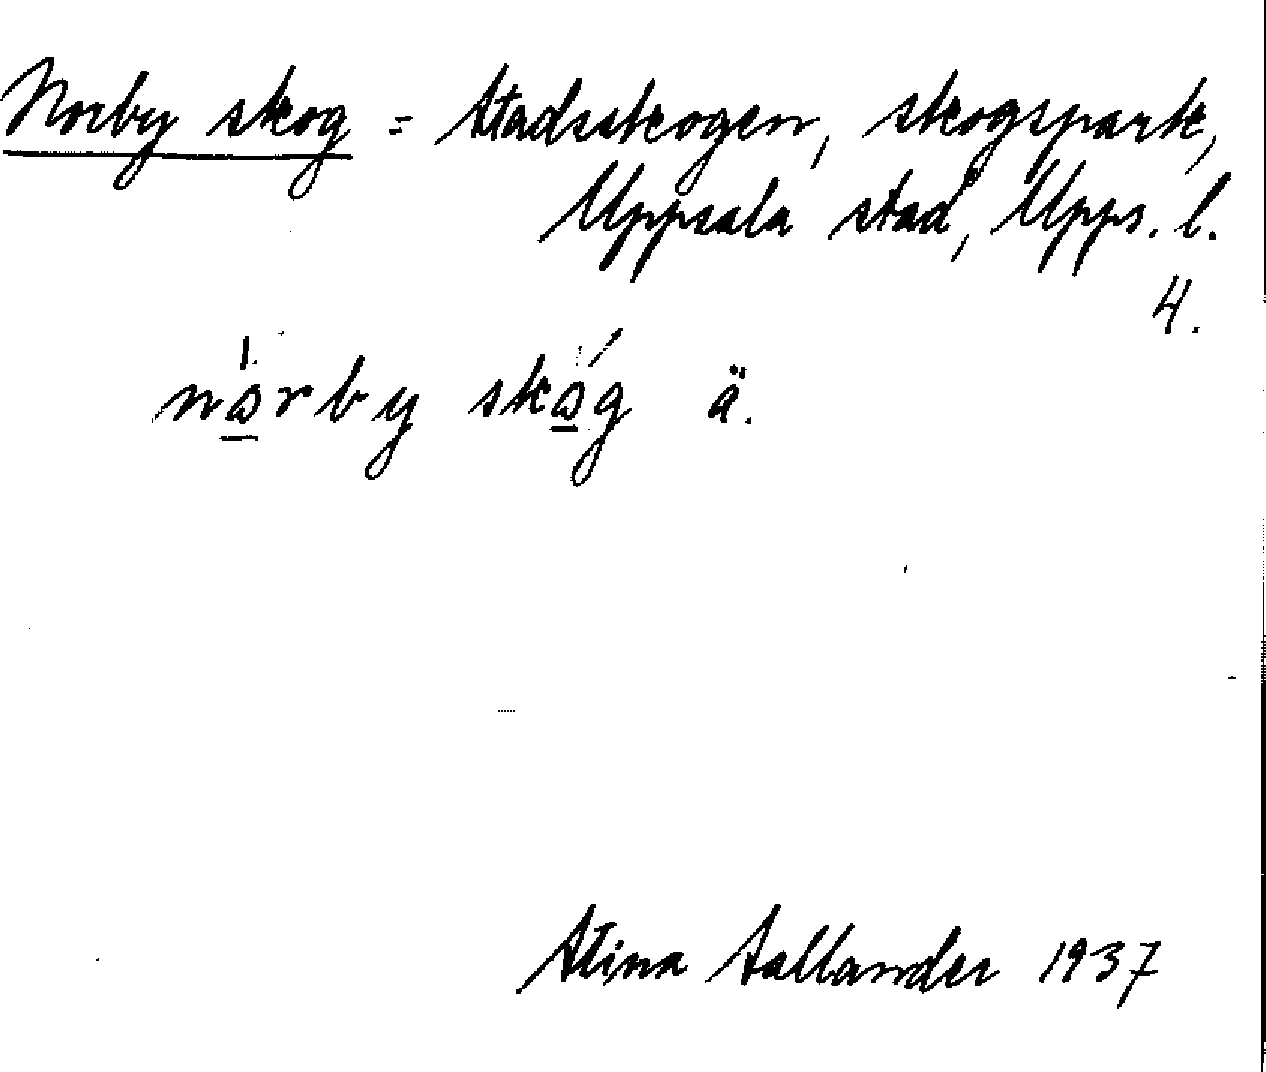 Norby skog = Stadsskogen, skogspark,
Uppsala stad, Upps. l.
4.
nòrby skóg ä.
Stina Sallander 1937